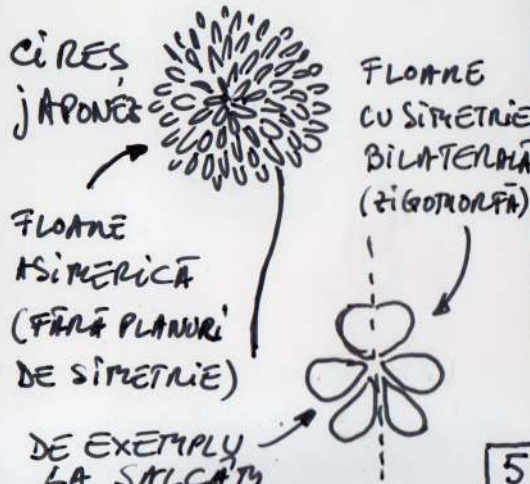 CIREȘ
JAPONEZ
FLOARE
ASIMERICĂ
(FĂRĂ PLANURI
DE SIMETRIE)
FLOARE
CU SIMETRIE
BILATERALĂ
(ZIGOMORFĂ)
DE EXEMPLU
LA SALCÂM
5